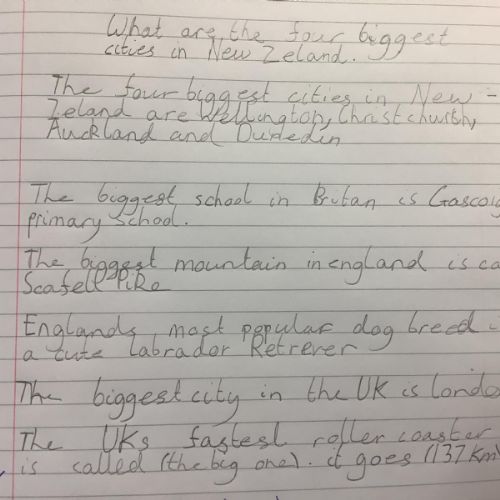 What are the four biggest
cities in New Zeland.
The four biggest cities in New -
Zeland are Wellington, Christchurch,
Auckland and Dudedin
The biggest school in Britan is Gascoig
primary School.
The biggest mountain in england is ca
Scafell Pike
Englands most popular dog breed i
a cute Labrador Retrever
The biggest city in the UK is londo
The UKs fastest roller coaster
is called (the big one). it goes (137 Km